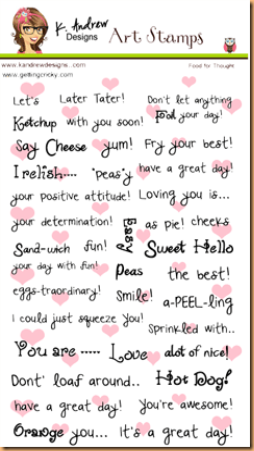 K. Andrew Designs Art Stamps
www.kandrewdesigns.com Food for Thought
www.gettingcricky.com
Let's Later Tater! Don't let anything
Ketchup with you soon! Foul your day!
Say Cheese yum! Fry your best!
I relish.... 'peas'y have a great day!
your positive attitude! Loving you is...
your determination! Easy as pie! cheeks
Sand-wich fun! Sweet Hello
your day with fun! Peas the best!
eggs-traordinary! Smile! a-PEEL-ling
I could just squeeze you! Sprinkled with..
You are ..... Love alot of nice!
Dont' loaf around.. Hot Dog!
have a great day! You're awesome!
Orange you... It's a great day!